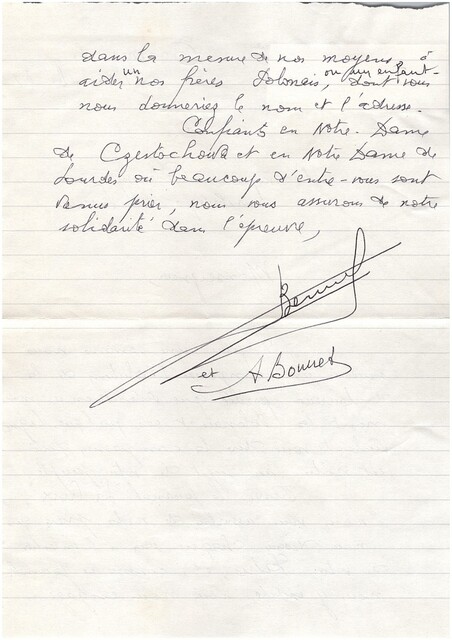 dans la mesure de nos moyens à
aider un nos frères Polonais, ou un enfant, dont vous
nous donneriez le nom et l'adresse.
Confiants en Notre-Dame
de Czestochowa et en Notre Dame de
Lourdes où beaucoup d'entre-vous sont
venus prier, nous vous assurons de notre
solidarité dans l'épreuve,
Bonnet
et A Bonnet